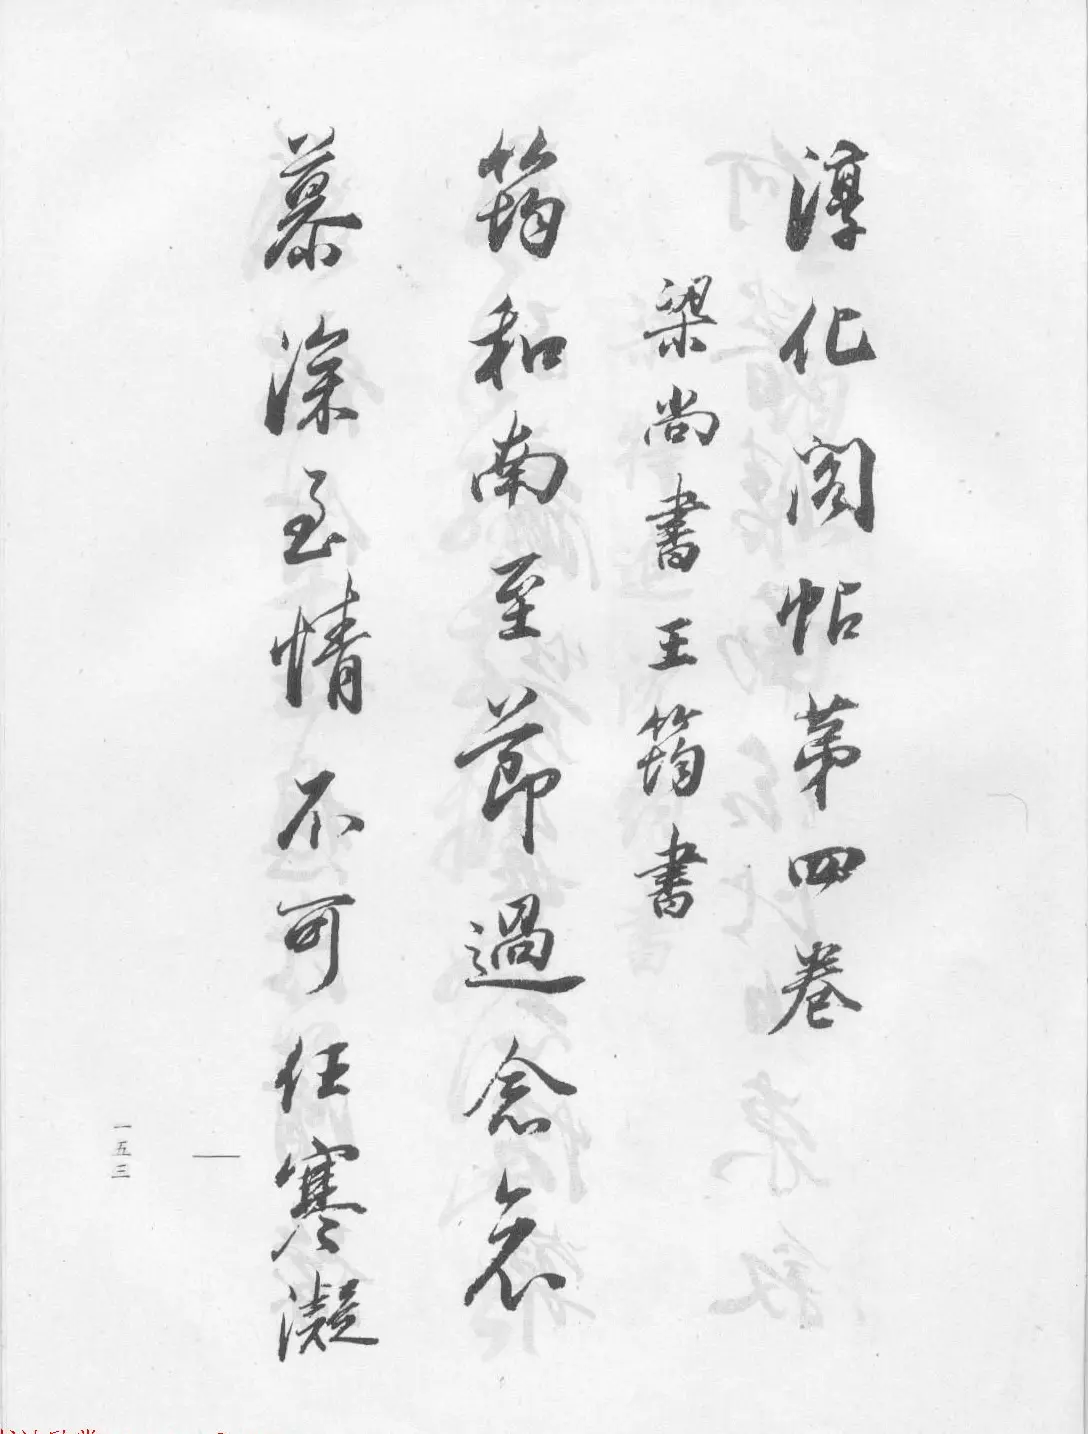 淳化閣帖第四卷
梁尚書王筠書
筠和南至節過念哀
慕深至情不可任寒凝
一五三